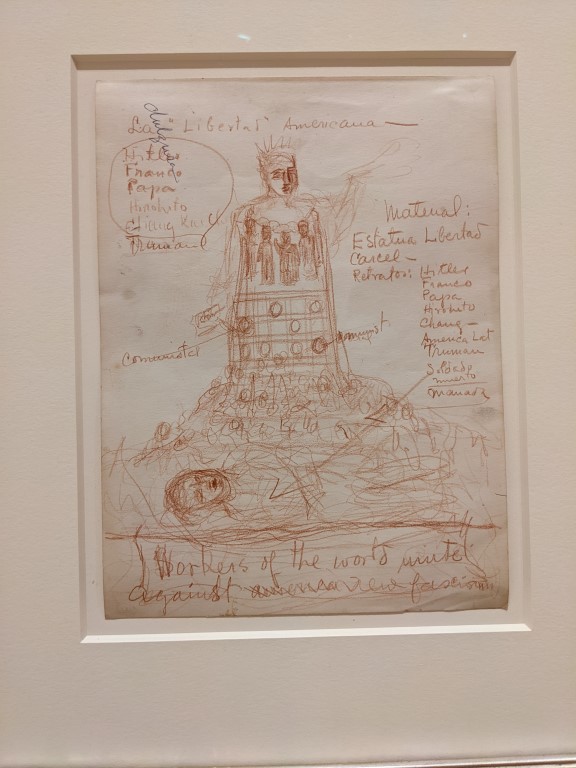 La Libertad Americana —
Hitler
Franco
Papa
Hirohito
Chiang Kai
Truman
Material:
Estatua Libertad
Carcel —
Retratos: Hitler
Franco
Papa
Hirohito
Chang —
America Lat
Truman
Soldado
muerto
Comunistas
Comunist.
Workers of the world unite
against america new fascism